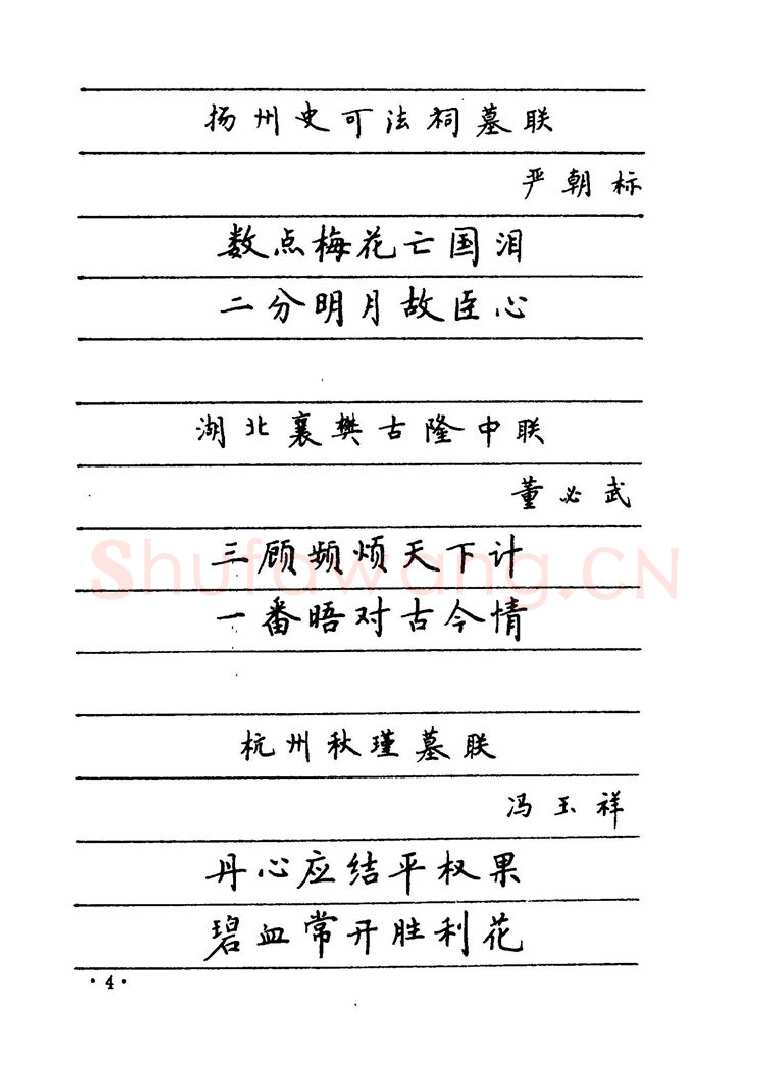 扬州史可法祠墓联
严朝标
数点梅花亡国泪
二分明月故臣心
湖北襄樊古隆中联
董必武
三顾频烦天下计
一番晤对古今情
Shufawang.CN
杭州秋瑾墓联
冯玉祥
丹心应结平权果
碧血常开胜利花
·4·